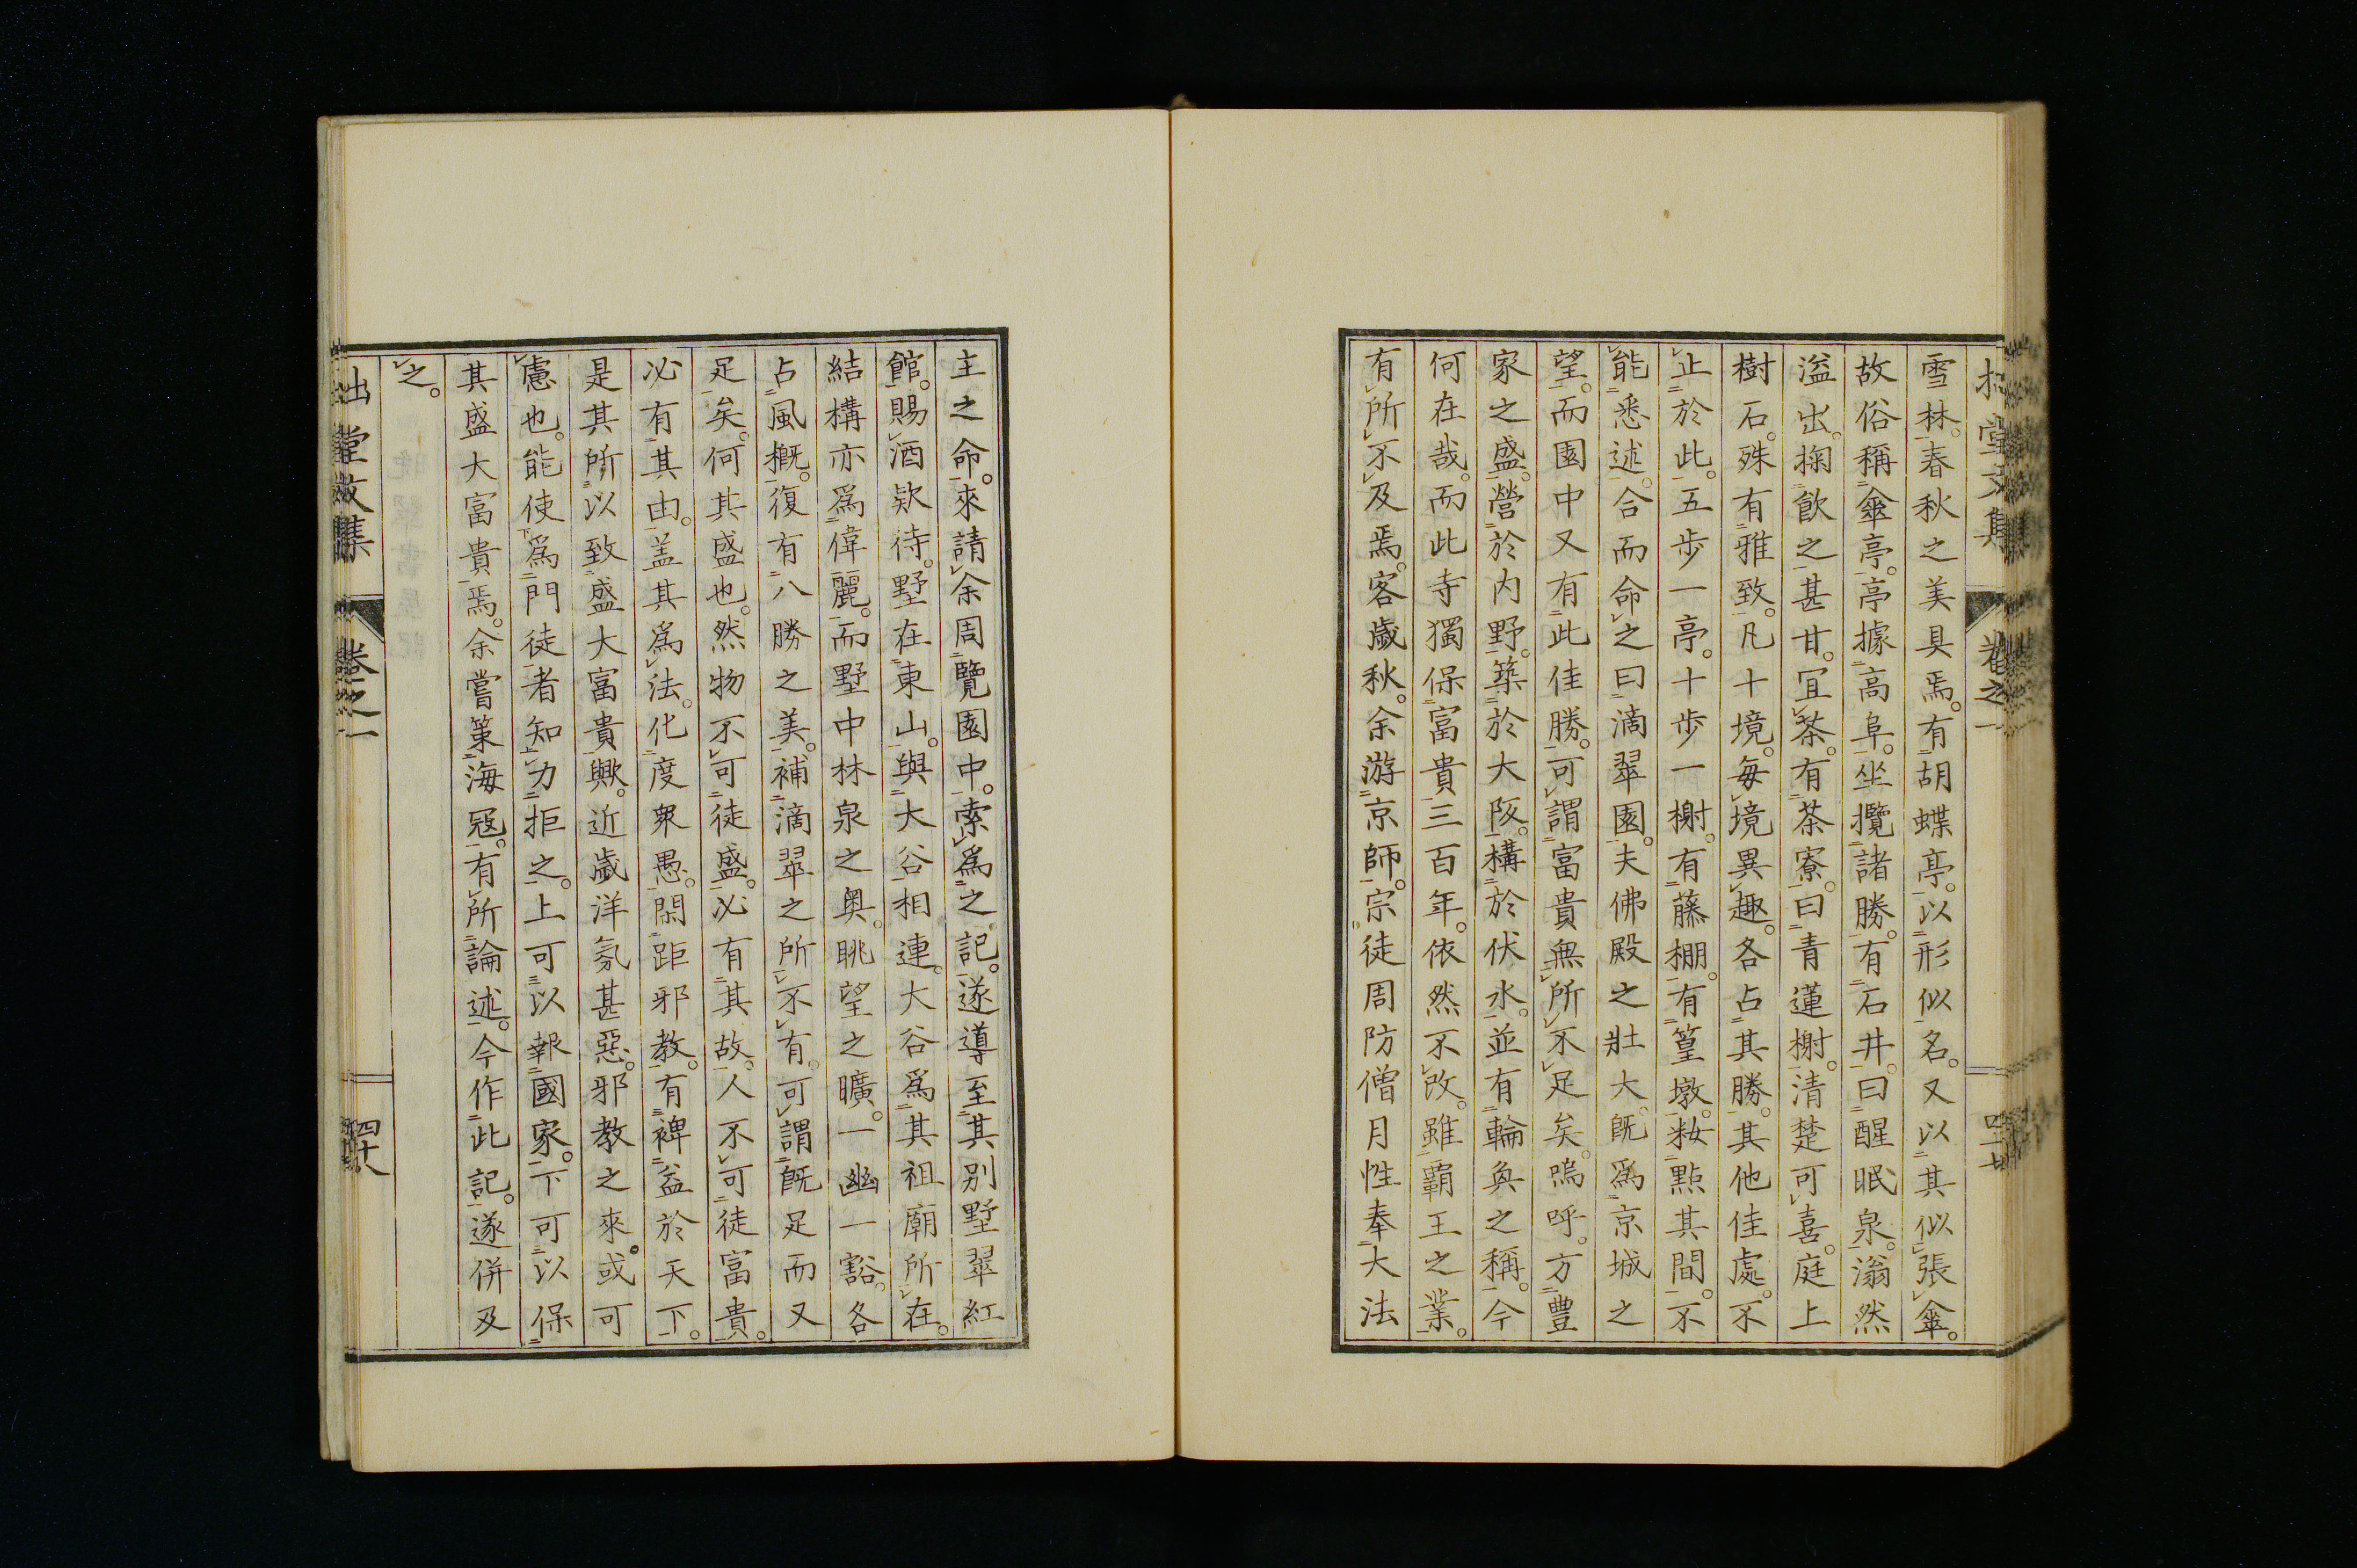 雪林。春秋之美具焉。有胡蝶亭。以形似名。又以其似張傘。
故俗稱傘亭。亭據高阜。坐攬諸勝。有石井。曰醒眠泉。滃然
溢出。掬飲之甚甘。宜茶。有茶寮。曰青蓮榭。清楚可喜。庭上
樹石。殊有雅致。凡十境。每境異趣。各占其勝。其他佳處。不
止於此。五步一亭。十步一榭。有藤棚。有篁墩。妝點其間。不
能悉述。合而命之曰滴翠園。夫佛殿之壯大。既為京城之
望。而園中又有此佳勝。可謂富貴無所不足矣。嗚呼。方豐
家之盛。營於内野。築於大阪。構於伏水。並有輪奐之稱。今
何在哉。而此寺獨保富貴三百年。依然不改。雖霸王之業。
有所不及焉。客歲秋。余游京師。宗徒周防僧月性奉大法
主之命。來請余周覽園中。索為之記。遂導至其別墅翠紅
館。賜酒欵待。墅在東山。與大谷相連。大谷為其祖廟所在。
結構亦為偉麗。而墅中林泉之奧。眺望之曠。一幽一豁。各
占風概。復有八勝之美。補滴翠之所不有。可謂既足而又
足矣。何其盛也。然物不可徒盛。必有其故。人不可徒富貴。
必有其由。盖其為法。化度衆愚。閑距邪教。有裨益於天下。
是其所以致盛大富貴歟。近歲洋氛甚惡。邪教之來。或可
慮也。能使為門徒者知力拒之。上可以報國家。下可以保
其盛大富貴焉。余嘗策海寇。有所論述。今作此記。遂併及
之。
堂文集
卷之一
四十八